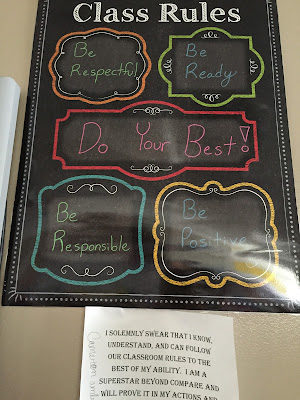 Class Rules
Be
Respectful
Be
Ready
Do Your Best!
Be
Responsible
Be
Positive
I SOLEMNLY SWEAR THAT I KNOW,
UNDERSTAND, AND CAN FOLLOW
OUR CLASSROOM RULES TO THE
BEST OF MY ABILITY. I AM A
SUPERSTAR BEYOND COMPARE AND
WILL PROVE IT IN MY ACTIONS AND